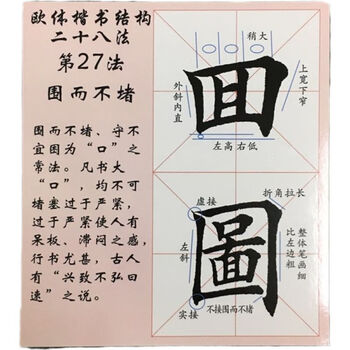 欧体楷书结构
二十八法
第27法
围而不堵
围而不堵、守不
宜困为“口”之
常法。凡书大
“口”，均不可
堵塞过于严紧，
过于严紧使人有
呆板、滞闷之感，
行书尤甚，古人
有“兴致不弘曰
速”之说。
稍大
上宽下窄
外斜内直
回
左高右低
虚接
折角拉长
左斜
圖
整体笔画细
比左边粗
实接
不接围而不堵